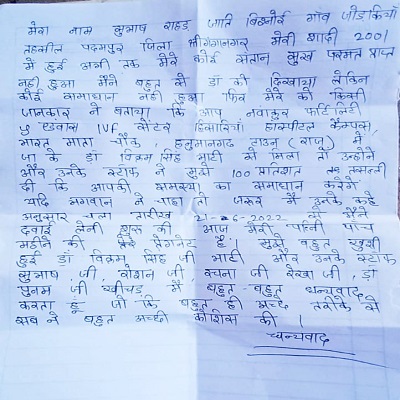 मेरा नाम सुभाष राहड़ जाति बिश्नोई गाँव जोडकियाँ
तहसील पदमपुर जिला श्रीगंगानगर मेरी शादी 2001
में हुई अभी तक मेरे कोई संतान सुख परमत प्राप्त
नहीं हुआ मैंने बहुत से डॉ को दिखाया लेकिन
कोई समाधान नहीं हुआ फिर मेरे को किसी
जानकार ने बताया कि आप नवांकुर फर्टिलिटी
एण्डवास IVF सेंटर हिसारिया हास्पीटल कैम्पस,
भारत माता चौंक, हनुमानगढ़ टाउन (राज) में
जा के डॉ विक्रम सिंह भाटी से मिला तो उन्होंने
और उनके स्टाफ ने मुझे 100 प्रतिशत तक तसल्ली
दी कि आपकी समस्या का समाधान करेंगे
यदि भगवान ने चाहा तो जरूर मैं उनके कहे
अनुसार चला तारीख 21-6-2022 से मैंने
दवाई लेनी शुरू की आज मेरी पत्नी पाँच
महीने की प्रेगनेंट है। मुझे बहुत खुशी
हुई डॉ विक्रम सिंह जी भाटी और उनके स्टाफ
सुभाष जी, रोशन जी, रचना जी रेखा जी, डॉ
पुनम जी खीचड़ में बहुत-बहुत धन्यवाद
करता हूं जो कि बहुत ही अच्छे तरीके से
सब ने बहुत अच्छी कोशिस की।
धन्यवाद